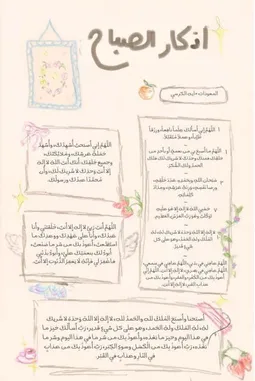 أذكار الصباح
المعوذات + آية الكرسي
اللهم إني أسألك علماً نافعاً ورزقاً
طيباً وعملاً متقبلاً
اللهم ما أصبح بي من نعمة أو بأحد من
خلقك فمنك وحدك لا شريك لك فلك
الحمد ولك الشكر
سبحان الله وبحمده عدد خلقه
ورضا نفسه وزنة عرشه ومداد
كلماته
حسبي الله لا إله إلا هو عليه
توكلت وهو رب العرش العظيم
اللهم إني أصبحت أشهدك وأشهد
حملة عرشك وملائكتك
وجميع خلقك أنك أنت الله لا إله
إلا أنت وحدك لا شريك لك وأن
محمداً عبدك ورسولك
اللهم أنت ربي لا إله إلا أنت، خلقتني وأنا
عبدك وأنا على عهدك ووعدك ما
استطعت أعوذ بك من شر ما صنعت
أبوء لك بنعمتك علي، وأبوء بذنبي
فاغفر لي فإنه لا يغفر الذنوب إلا أنت
أصبحنا وأصبح الملك لله والحمد لله لا إله إلا الله وحده لا شريك
له، له الملك وله الحمد، وهو على كل شيء قدير، رب أسألك خير ما
في هذا اليوم وخير ما بعده وأعوذ بك من شر ما في هذا اليوم وشر ما
بعده، رب أعوذ بك من الكسل وسوء الكبر، رب أعوذ بك من عذاب
في النار وعذاب في القبر